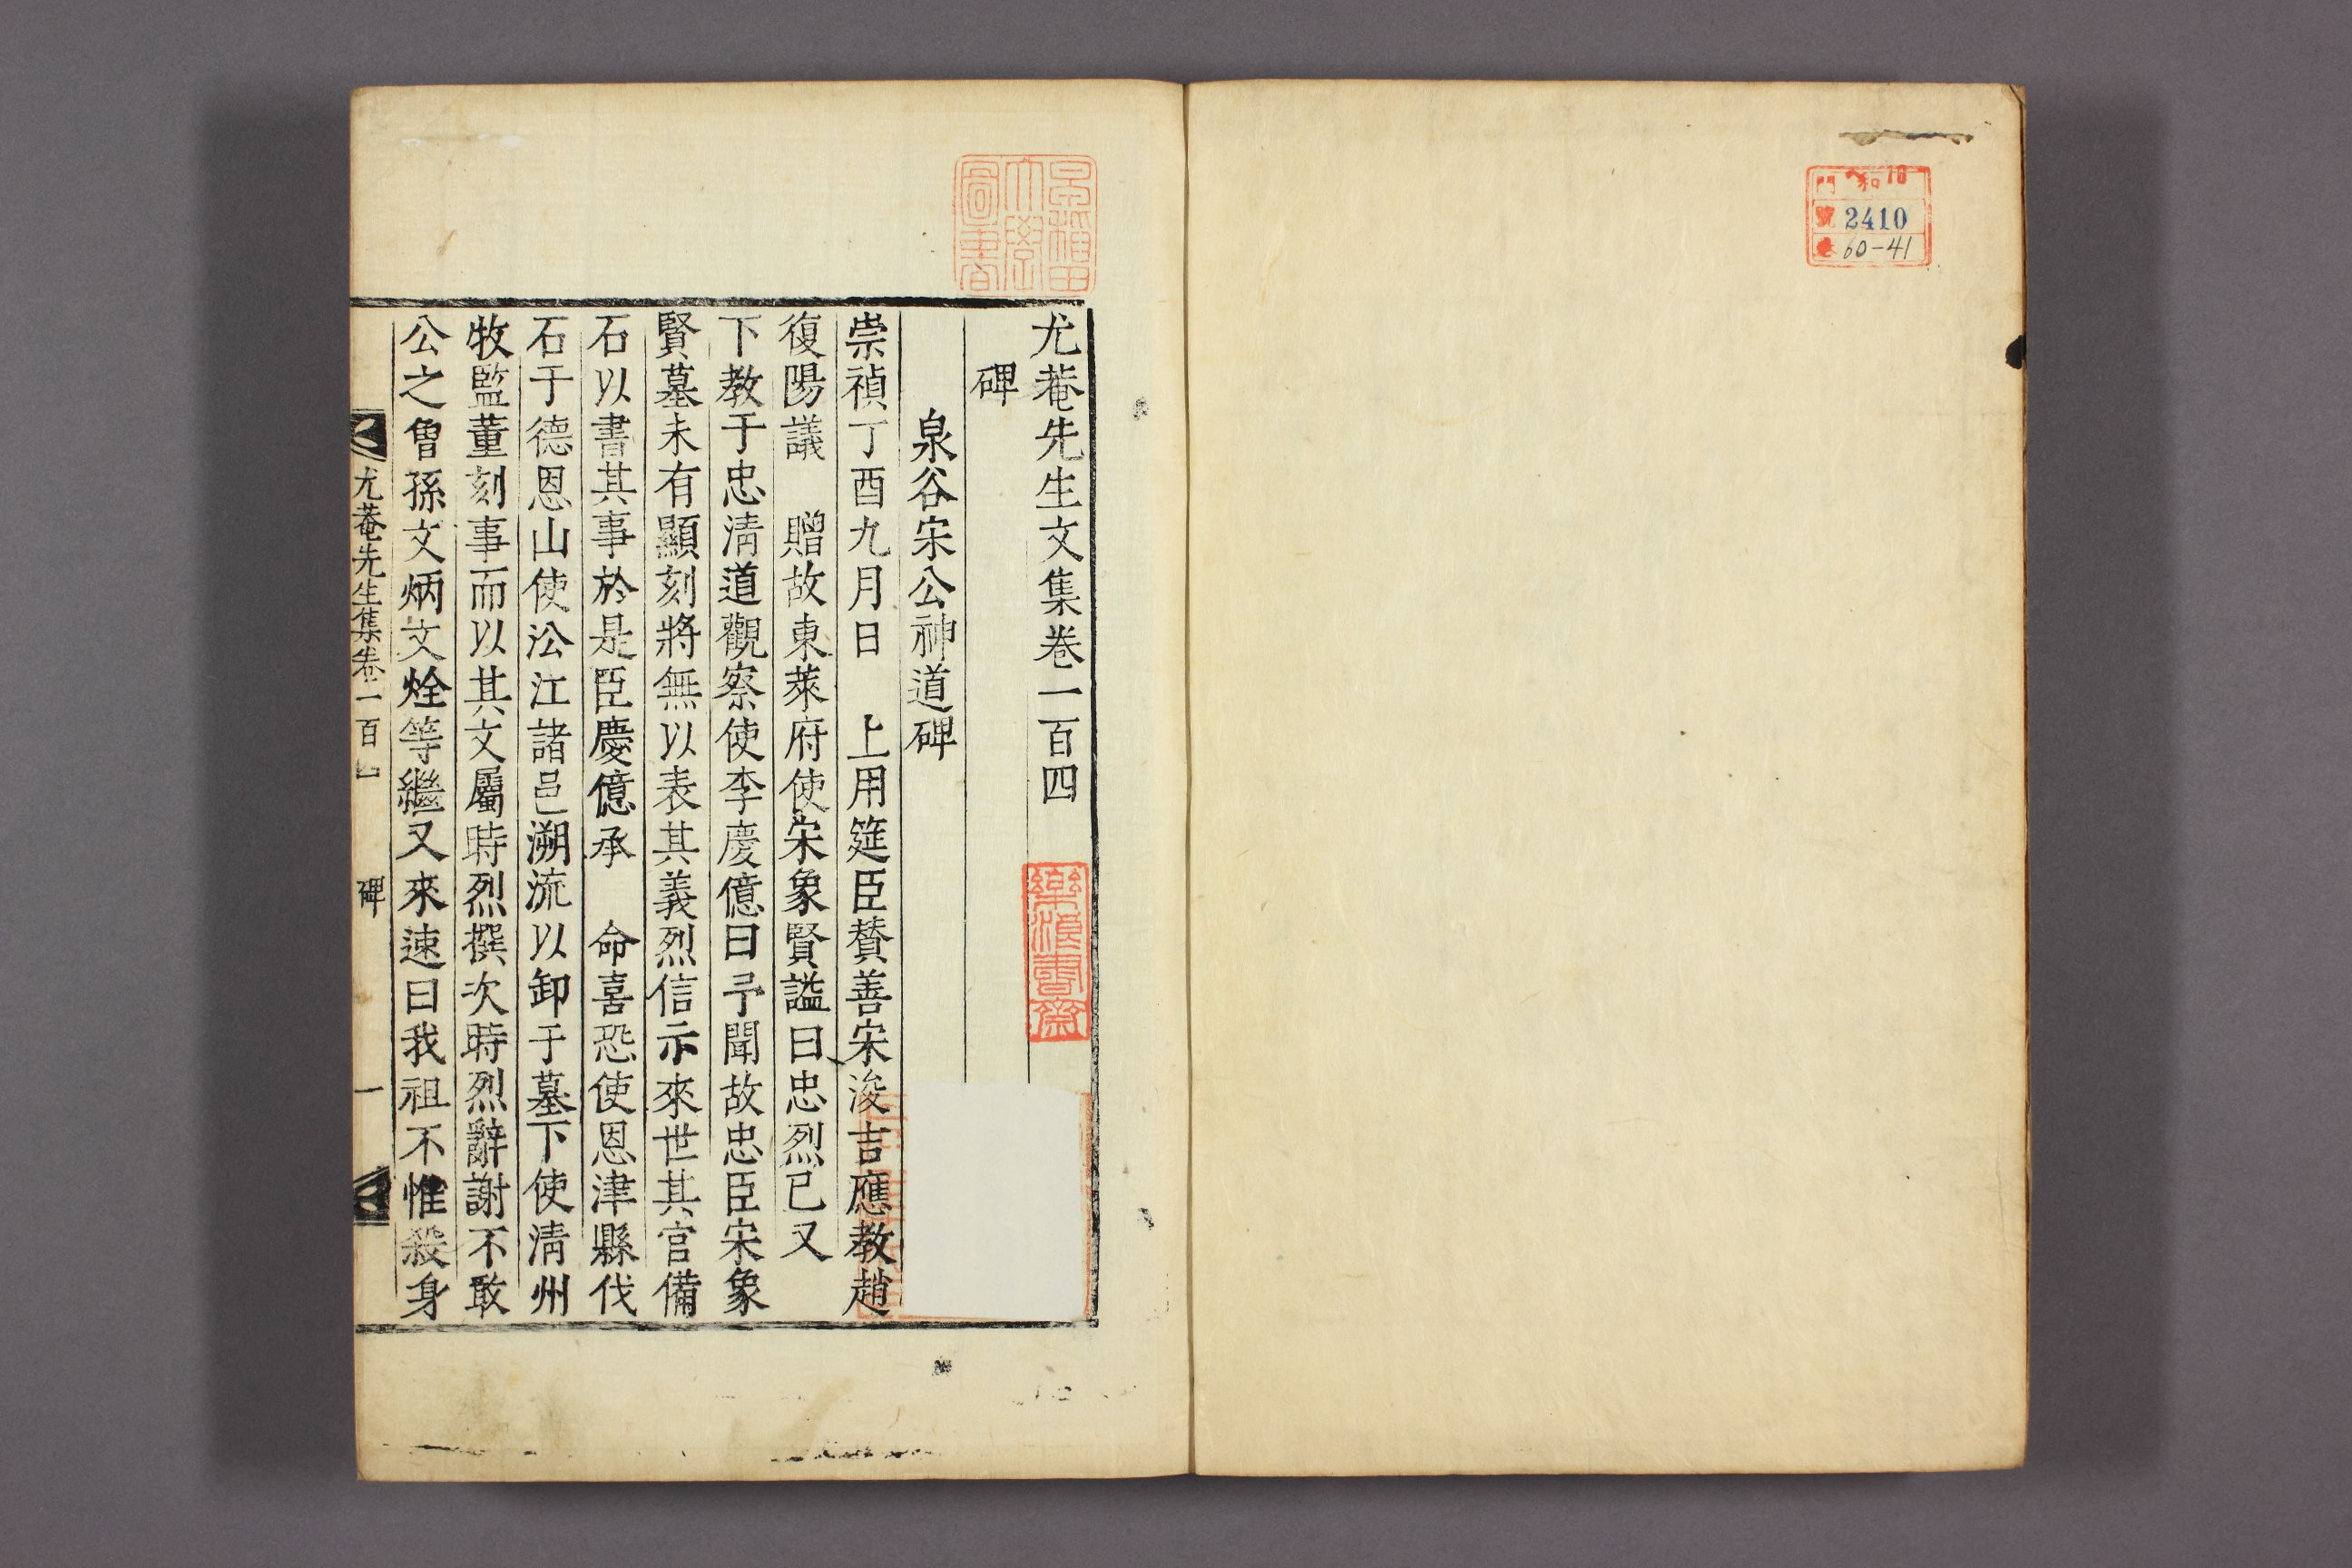 門 和 16
號 2410
卷 60-41
早稲田
大學
圖書
尤菴先生文集卷一百四
樂浪書齋
碑
泉谷宋公神道碑
崇禎丁酉九月日 上用筵臣贊善宋浚吉應教趙
復陽議 贈故東萊府使宋象賢謚曰忠烈已又
下教于忠淸道觀察使李慶億曰予聞故忠臣宋象
賢墓未有顯刻將無以表其義烈信示來世其官備
石以書其事於是臣慶億承 命喜恐使恩津縣伐
石于德恩山使㳂江諸邑溯流以卸于墓下使淸州
牧監董刻事而以其文屬時烈撰次時烈辭謝不敢
公之曾孫文炳文烇等繼又來速曰我祖不惟殺身
尤菴先生集卷一百四 碑 一